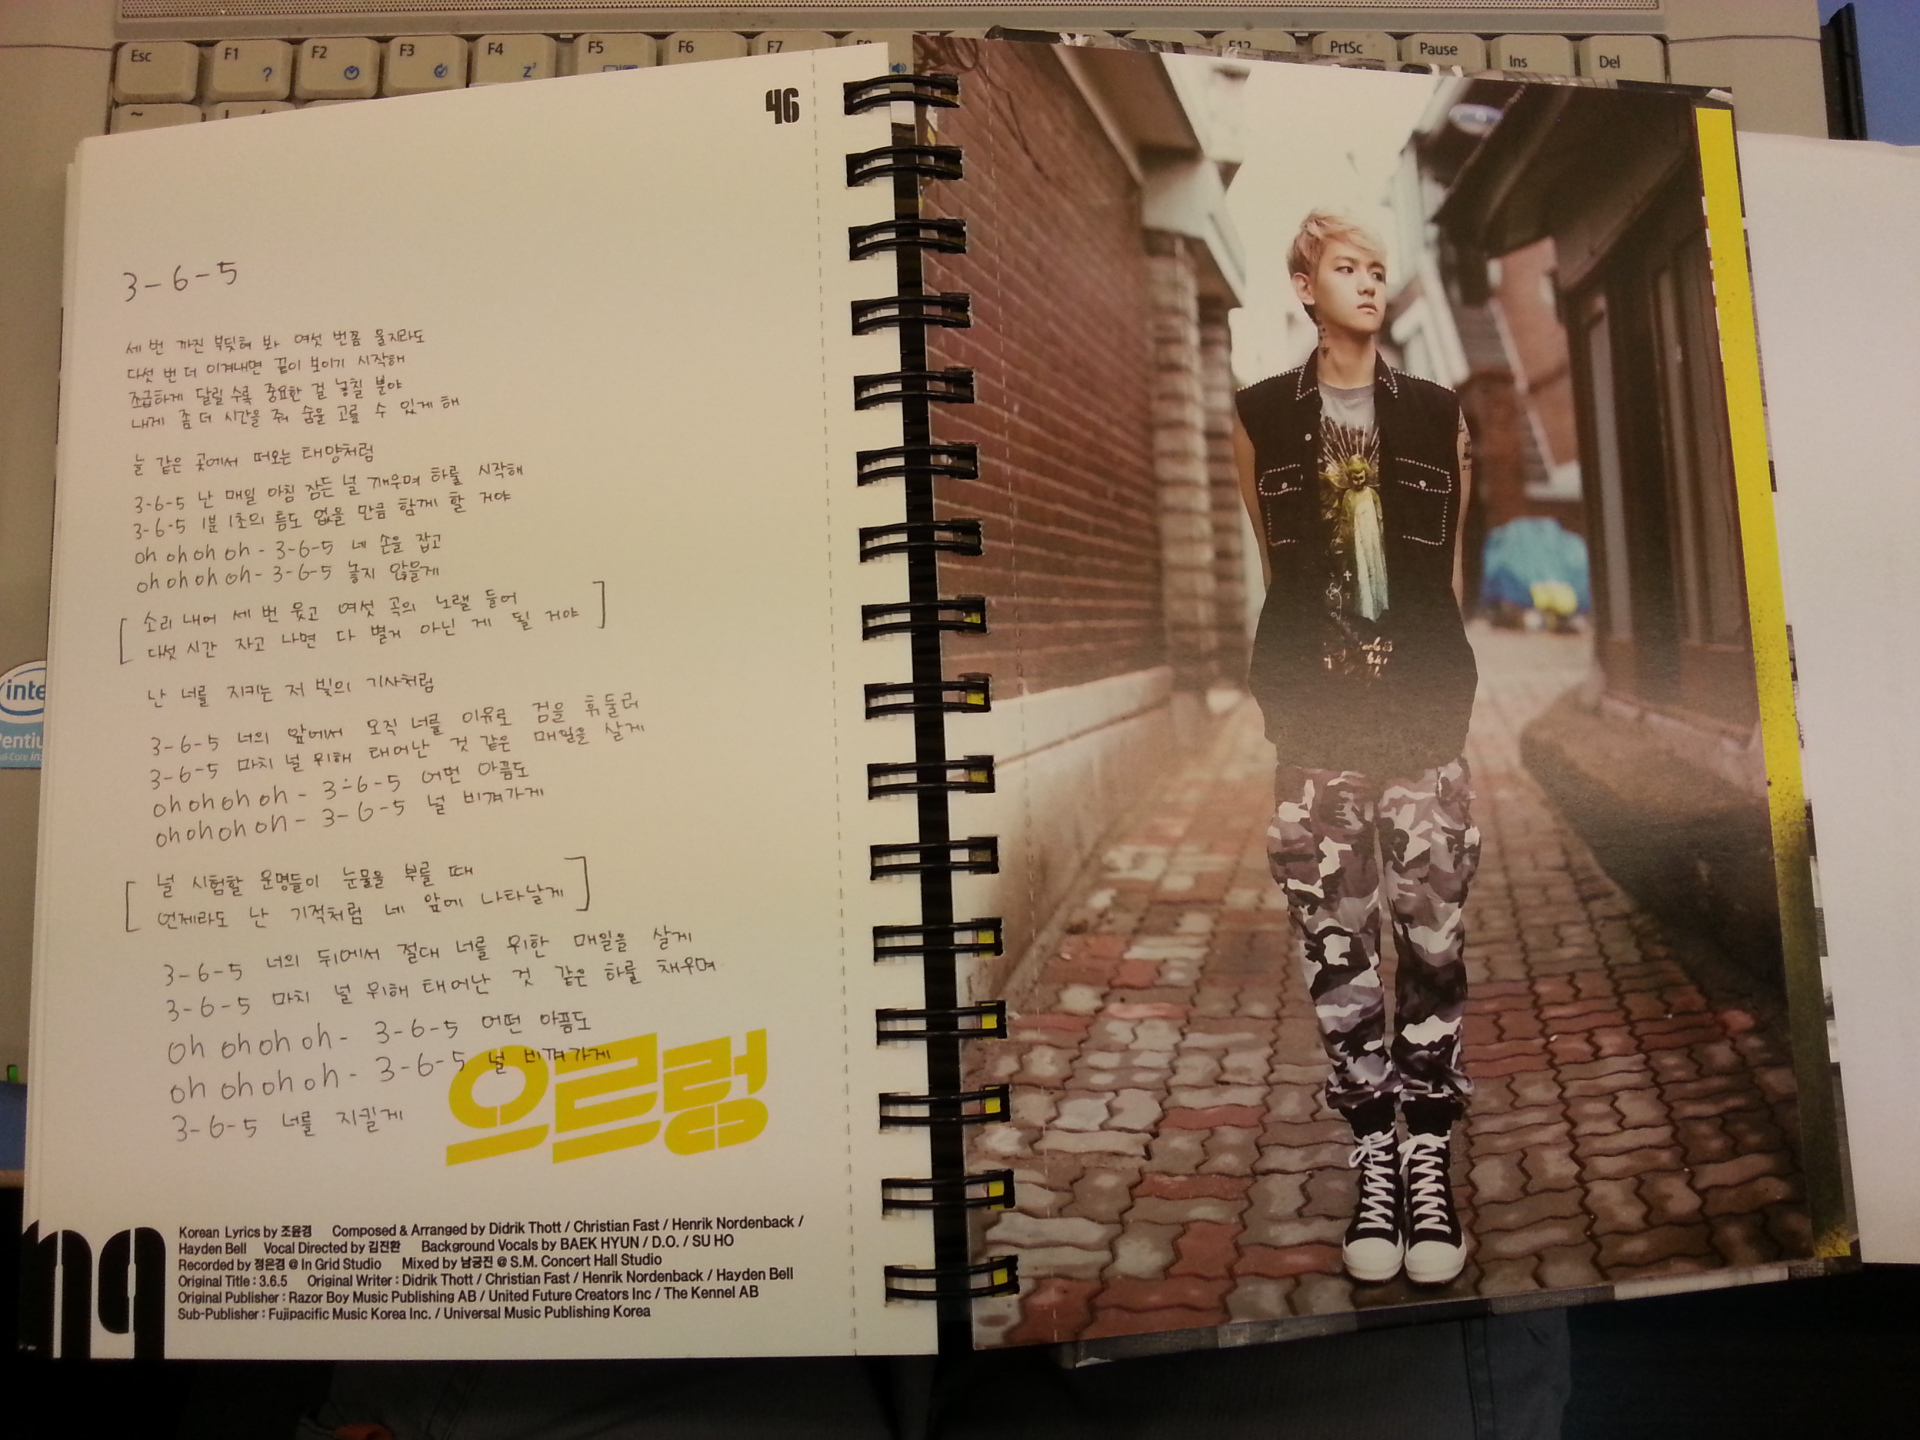 Esc
F1
F2
F3
F4
F5
F6
F7
F12
PrtSc
Pause
Ins
Del
46
3-6-5
세 번 까진 부딪혀 봐 여섯 번쯤 울지라도
다섯 번 더 이겨내면 끝이 보이기 시작해
조급하게 달릴 수록 중요한 걸 놓칠 뿐야
내게 좀 더 시간을 줘 숨을 고를 수 있게 해
늘 같은 곳에서 떠오는 태양처럼
3-6-5 난 매일 아침 잠든 널 깨우며 하룰 시작해
3-6-5 1분 1초의 틈도 없을 만큼 함께 할 거야
oh oh oh oh - 3-6-5 네 손을 잡고
oh oh oh oh - 3-6-5 놓지 않을게
[ 소리 내어 세 번 웃고 여섯 곡의 노랠 들어
다섯 시간 자고 나면 다 별거 아닌 게 될 거야 ]
난 너를 지키는 저 빛의 기사처럼
3-6-5 너의 앞에서 오직 너를 이유로 검을 휘둘러
3-6-5 마치 널 위해 태어난 것 같은 매일을 살게
oh oh oh oh - 3-6-5 어떤 아픔도
oh oh oh oh - 3-6-5 널 비껴가게
[ 널 시험할 운명들이 눈물을 부를 때
언제라도 난 기적처럼 네 앞에 나타날게 ]
3-6-5 너의 뒤에서 절대 너를 위한 매일을 살게
3-6-5 마치 널 위해 태어난 것 같은 하룰 채우며
oh oh oh oh - 3-6-5 어떤 아픔도
oh oh oh oh - 3-6-5 널 비껴가게
3-6-5 너를 지킬게
으르렁
Korean Lyrics by 조윤경 Composed & Arranged by Didrik Thott / Christian Fast / Henrik Nordenback /
Hayden Bell Vocal Directed by 김진환 Background Vocals by BAEK HYUN / D.O. / SU HO
Recorded by 정은경 @ In Grid Studio Mixed by 남궁진 @ S.M. Concert Hall Studio
Original Title : 3.6.5 Original Writer : Didrik Thott / Christian Fast / Henrik Nordenback / Hayden Bell
Original Publisher : Razor Boy Music Publishing AB / United Future Creators Inc / The Kennel AB
Sub-Publisher : Fujipacific Music Korea Inc. / Universal Music Publishing Korea